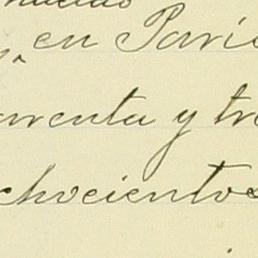 en Paris
arenta y tre
chocientos